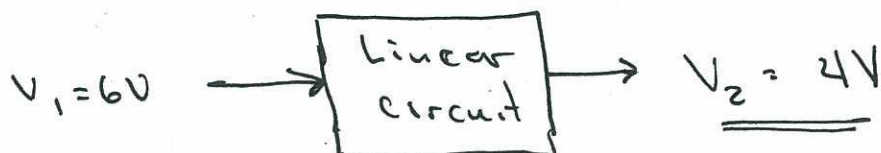 V₁ = 6V
Linear
circuit
V₂ = 4V